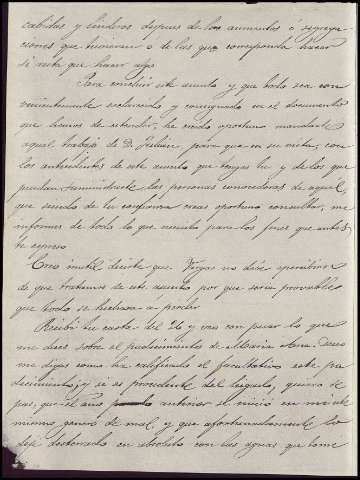 cabidas y linderos despues de los aumentos ó segrega-
ciones que tuvieran o de las que corresponda hacer
si resta que hacer algo
Para concluir este asunto y que todo sea con-
venientemente esclarecido y consignado en el documento
que hemos de estender, he creido oportuno mandarte
aquel trabajo de D. para que en su vista, con
los antecedentes de este asunto que tengas tu y de los que
puedan suministrarte las personas conocedoras de aquel
que siendo de tu confianza creas oportuno consultar, me
informes de todo lo que resulte para los fines que antes
te espreso
Creo inutil decirte que Vargas no debe apercibirse
de que tratamos de este asunto por que seria provable
que todo se hechara á perder
Recibí tu carta del 26 y veo con pesar lo que
me dices sobre el padecimiento de Maria Ana. Deseo
me digas como ha calificado el facultativo este pa-
decimiento, y si es procedente del higado, genero de
que el anterior se inició en mi este
mismo genero de mal, y que afortunadamente lo
dejé desterrado en absoluto con las aguas que tomé